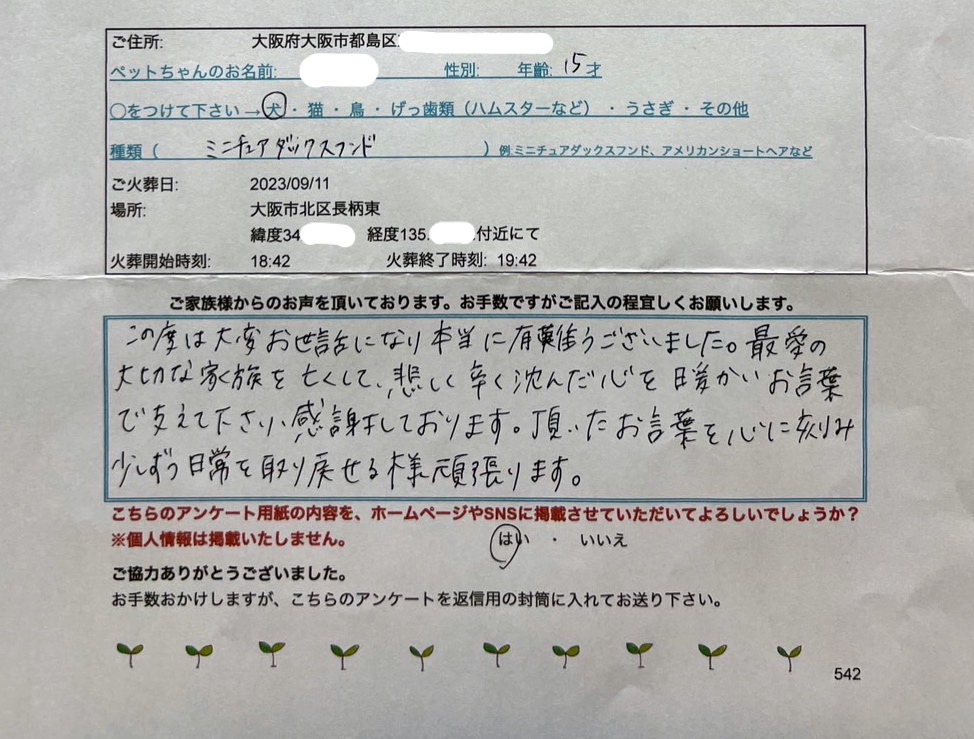 ご住所: 大阪府大阪市都島区
ペットちゃんのお名前: 性別: 年齢: 15才
〇をつけて下さい→犬・猫・鳥・げっ歯類（ハムスターなど）・うさぎ・その他
種類（ ミニチュアダックスフンド ）例:ミニチュアダックスフンド、アメリカンショートヘアなど
ご火葬日: 2023/09/11
場所: 大阪市北区長柄東
緯度34 経度135. 付近にて
火葬開始時刻: 18:42 火葬終了時刻: 19:42
ご家族様からのお声を頂いております。お手数ですがご記入の程宜しくお願いします。
この度は大変お世話になり本当に有難うございました。最愛の
大切な家族を亡くして、悲しく辛く沈んだ心を暖かいお言葉
で支えて下さい感謝しております。頂いたお言葉を心に刻み
少しずつ日常を取り戻せる様頑張ります。
こちらのアンケート用紙の内容を、ホームページやSNSに掲載させていただいてよろしいでしょうか？
※個人情報は掲載いたしません。 はい ・ いいえ
ご協力ありがとうございました。
お手数おかけしますが、こちらのアンケートを返信用の封筒に入れてお送り下さい。
542